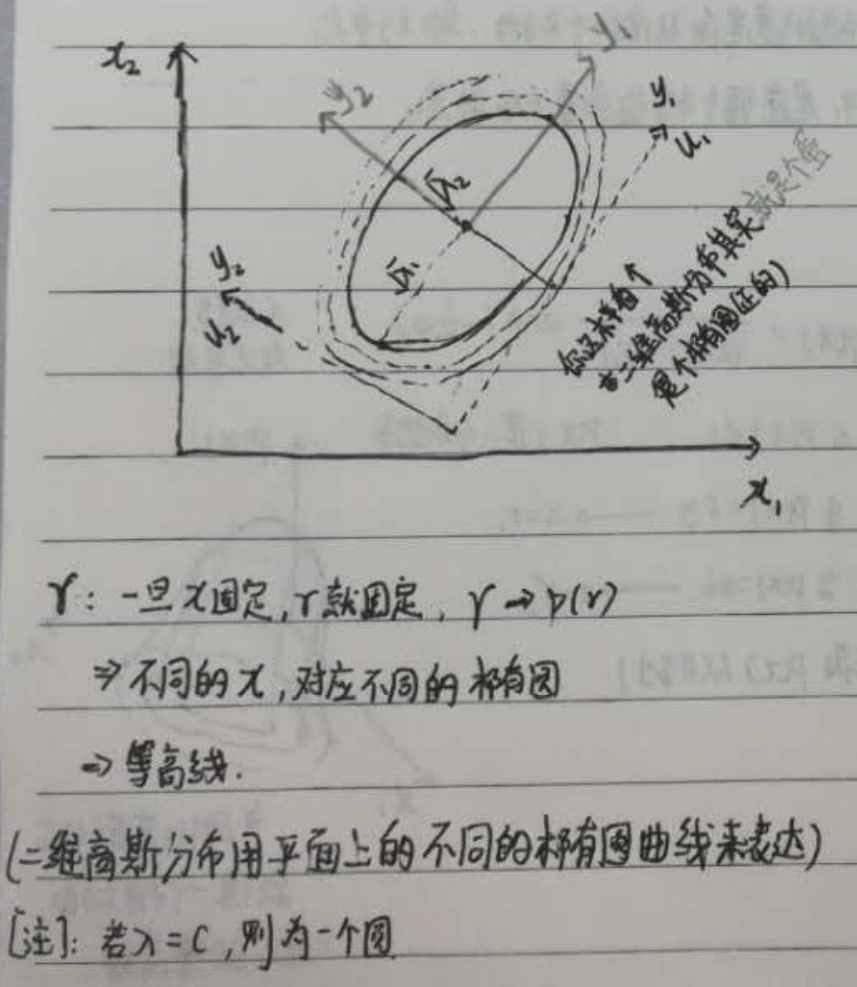 x₂
y₂
y₁
y₁
u₁
√λ₂
√λ₁
y₂
u₂
就是个蛋
二维高斯分布其实
是个椭圆
x₁
r: 一旦x固定,r就固定, r → p(r)
⇒ 不同的x,对应不同的椭圆
⇒ 等高线.
(二维高斯分布用平面上的不同的椭圆曲线来表达)
[注]: 若λ=C,则为一个圆